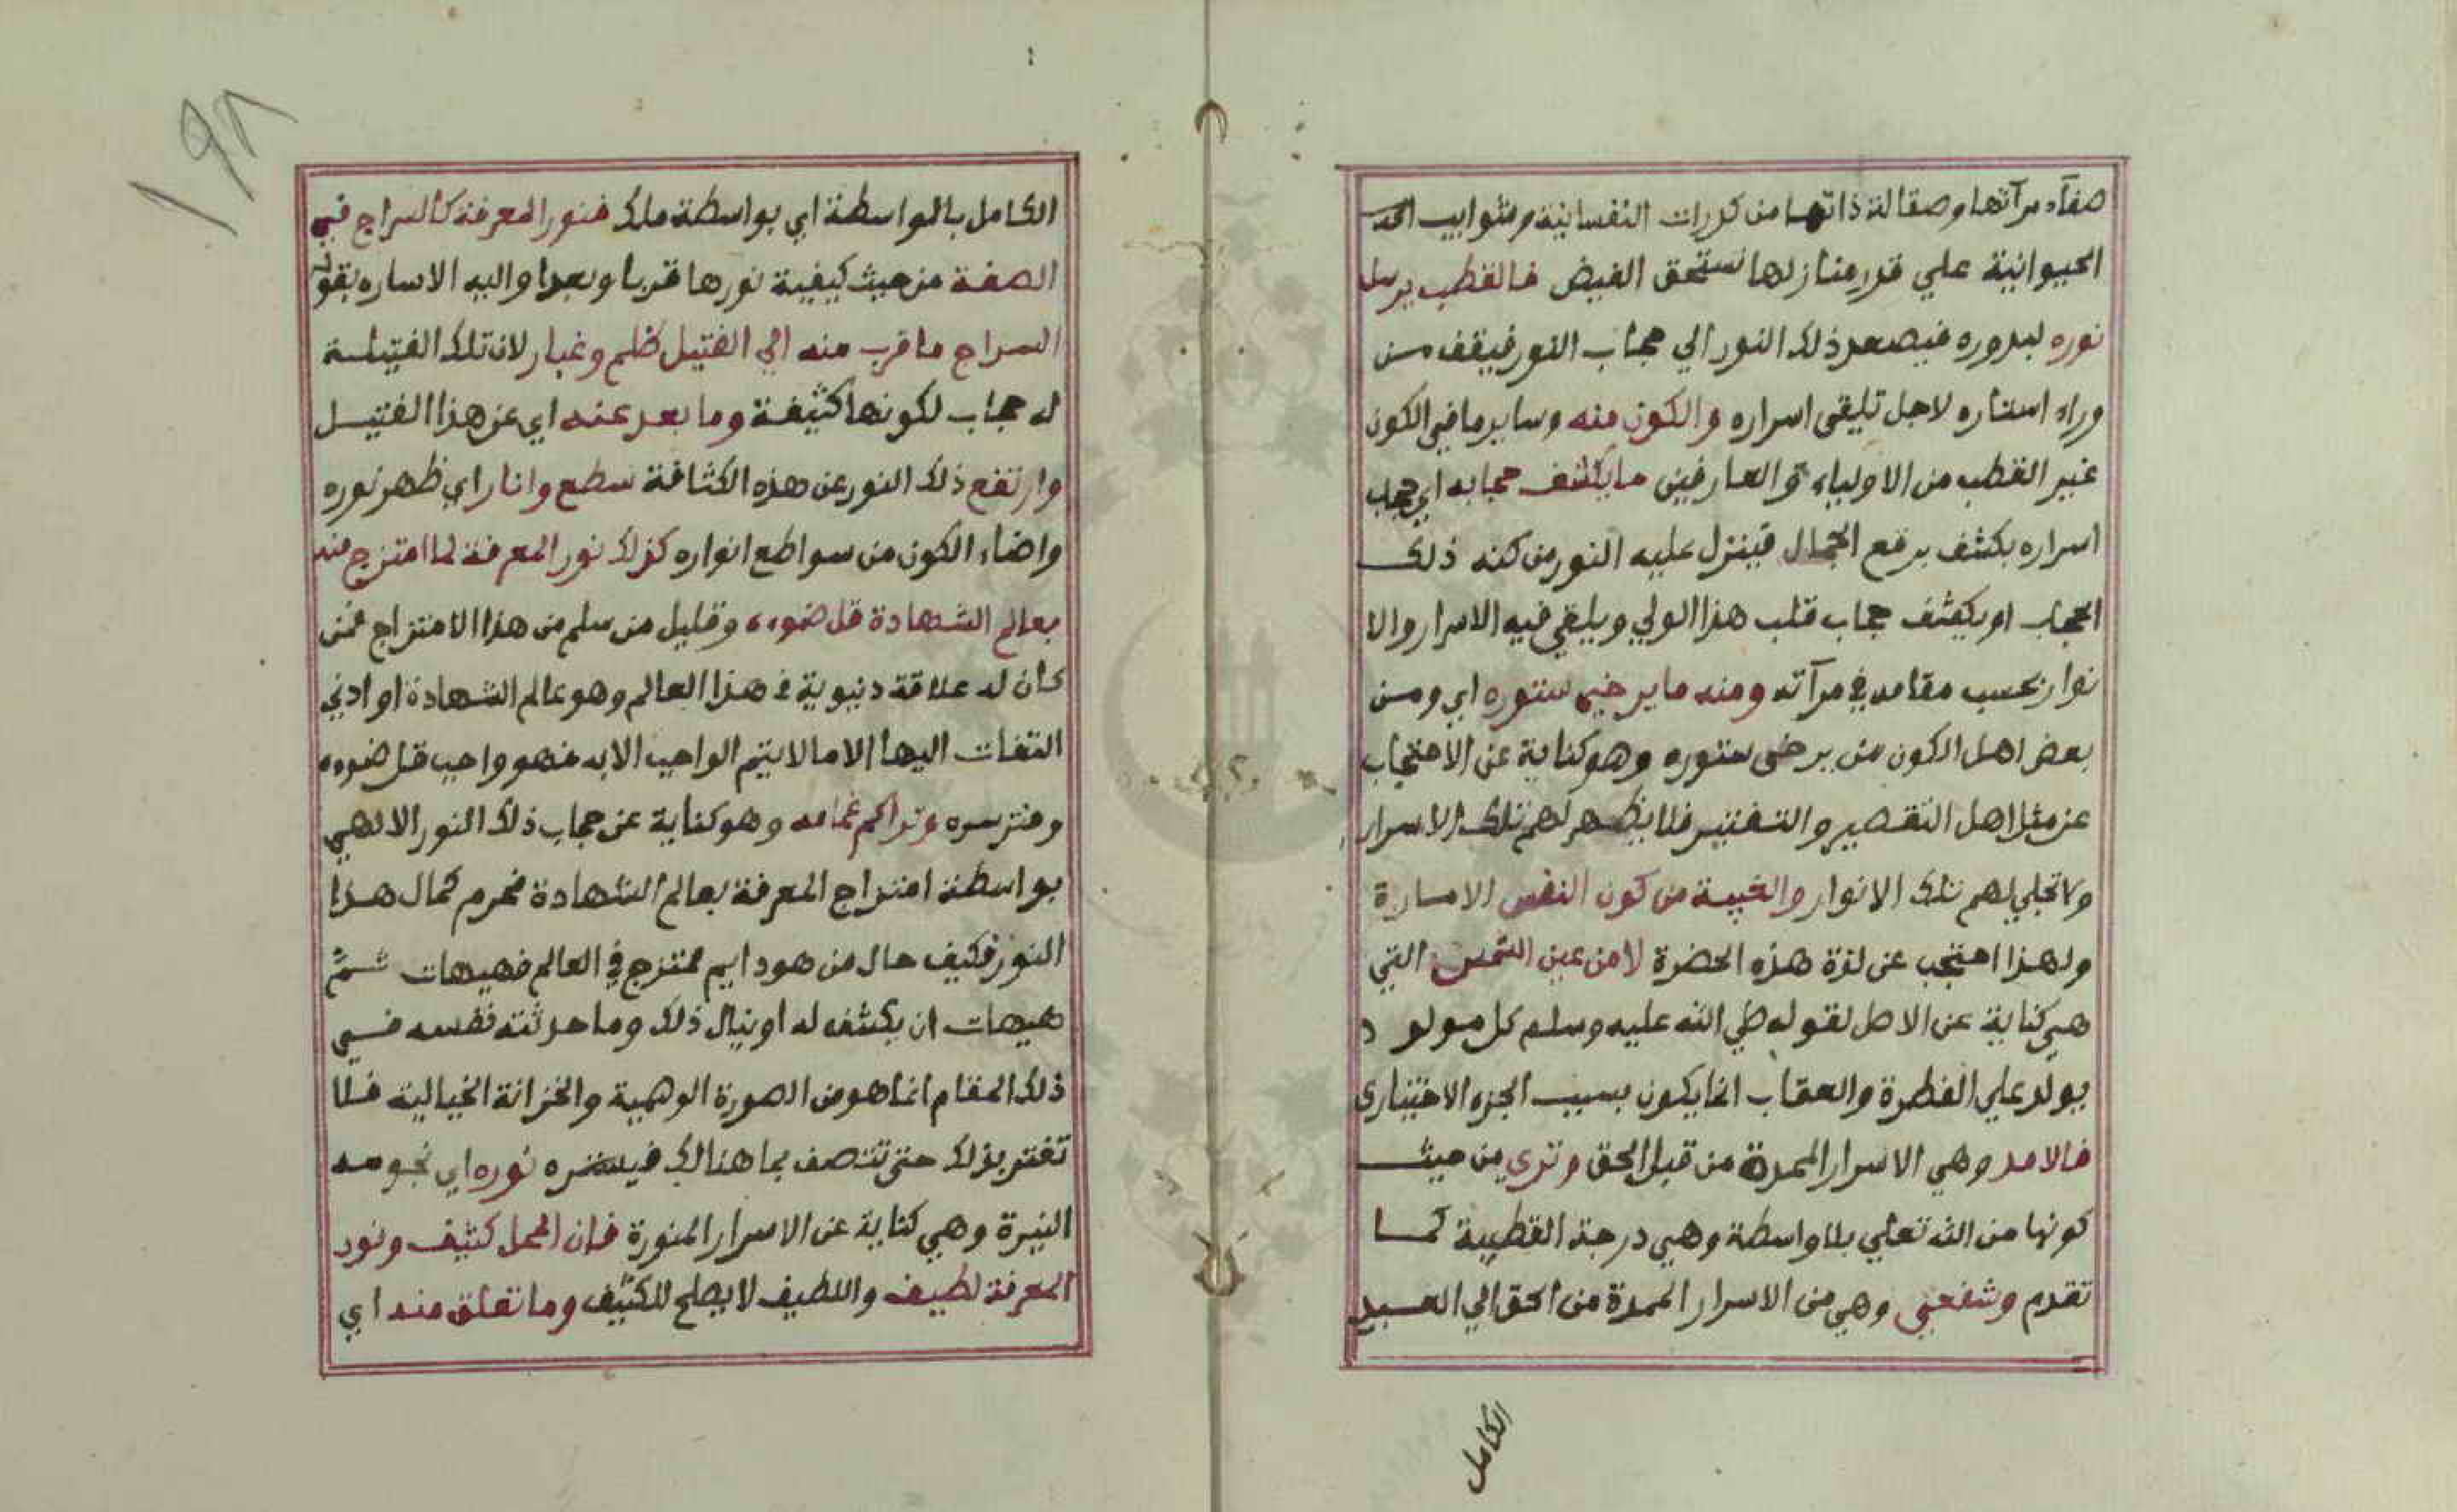 صفآء مرآتها وصقالة ذاتها من كدرات النفسانية وشوايب الحد
الحيوانية علي قدر منازلها تستحق الفيض فالقطب يرسل
نوره لبدوره فيصعد ذلك النور الي حجاب النور فيقف من
وراء استاره لاجل تليقى اسراره والكون منه وساير ما في الكون
غير القطب من الاولياء والعارفين ما يكشف حجابه اي حجاب
اسراره بكشف برفع الحجال فينزل عليه النور من كنه ذلك
الحجاب او يكشف حجاب قلب هذا الولي ويلقي فيه الاسرار والا
نوار بحسب مقامه في مرآته ومنه ما يرخي ستوره اي ومن
بعض اهل الكون من يرخى ستوره وهو كناية عن الاحتجاب
عن مثل اهل التقصير والتفتير فلا يظهر لهم تلك الاسرار
ولا تجلي لهم تلك الانوار والغيبة من كون النفس الامارة
ولهذا احتجب عن لذة هذه الحضرة لا من عين الشمس التي
هي كناية عن الاصل لقوله صلي الله عليه وسلم كل مولود
يولد علي الفطرة والعقاب انما يكون بسبب الجزء الاختيارى
فالامد وهي الاسرار الممدة من قبل الحق وترى من حيث
كونها من الله تعالي بلا واسطة وهي درجة القطبية كما
تقدم وشفعي وهي من الاسرار الممدة من الحق الي العبد
الكامل
١٩٨
الكامل بالواسطة اي بواسطة ملك فنور المعرفة كالسراج في
الصفة من حيث كيفية نورها قربا وبعدا واليه الاساره بقوله
السراج ما قرب منه الي الفتيل ظلم وغبار لان تلك الفتيلة
له حجاب لكونها كثيفة وما بعد عنه اي عن هذا الفتيل
وارتفع ذلك النور عن هذه الكثافة سطع وانار اي ظهر نوره
واضاء الكون من سواطع انواره كذلك نور المعرفة لما امتزج منه
بعالم الشهادة قل ضوءه وقليل من سلم من هذا الامتزاج فمن
كان له علاقة دنيوية في هذا العالم وهو عالم الشهادة او ادني
التفات اليها الا ما لا يتم الواجب الا به فهو واجب قل ضوءه
وفتر سره وتراكم غمامه وهو كناية عن حجاب ذلك النور الالهي
بواسطة امتزاج المعرفة بعالم الشهادة فحرم كمال هذا
النور فكيف حال من هو دايم ممتزج في العالم فهيهات ثم
هيهات ان يكشف له او ينال ذلك وما حدثته نفسه في
ذلك المقام انما هو من الصورة الوهمية والخزانة الخيالية فلا
تفتر بذلك حتى تتصف بما هنالك نوره اي نجومه
النيرة وهي كناية عن الاسرار المنورة فان المحل كثيف ونور
المعرفة لطيف واللطيف لا يصلح للكثيف وما تعلق منه اي